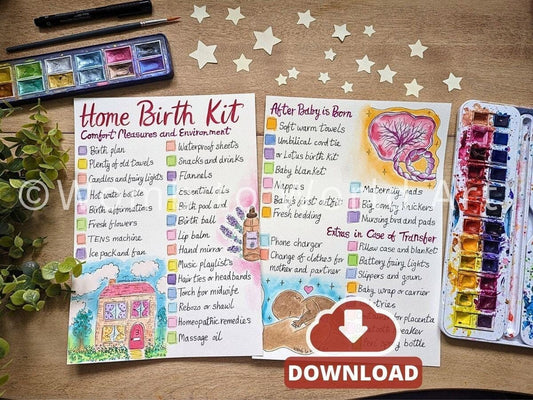 Home Birth Kit
Comfort Measures and Environment
Birth plan
Plenty of old towels
Candles and fairy lights
Hot water bottle
Birth affirmations
Fresh flowers
TENS machine
Ice pack and fan
Waterproof sheets
Snacks and drinks
Flannels
Essential oils
Birth pool and
Birth ball
Lip balm
Hand mirror
Music playlists
Hair ties or headbands
Torch for midwife
Rebozo or shawl
Homeopathic remedies
Massage oil
After Baby is Born
Soft warm towels
Umbilical cord tie
or Lotus birth kit
Baby blanket
Nappies
Baby's first outfit
Fresh bedding
Maternity pads
Big comfy knickers
Nursing bra and pads
Extras in Case of Transfer
Phone charger
Change of clothes for
mother and partner
Pillow case and blanket
Battery fairy lights
Slippers and gown
Baby wrap or carrier
for placenta
bottle
DOWNLOAD
©